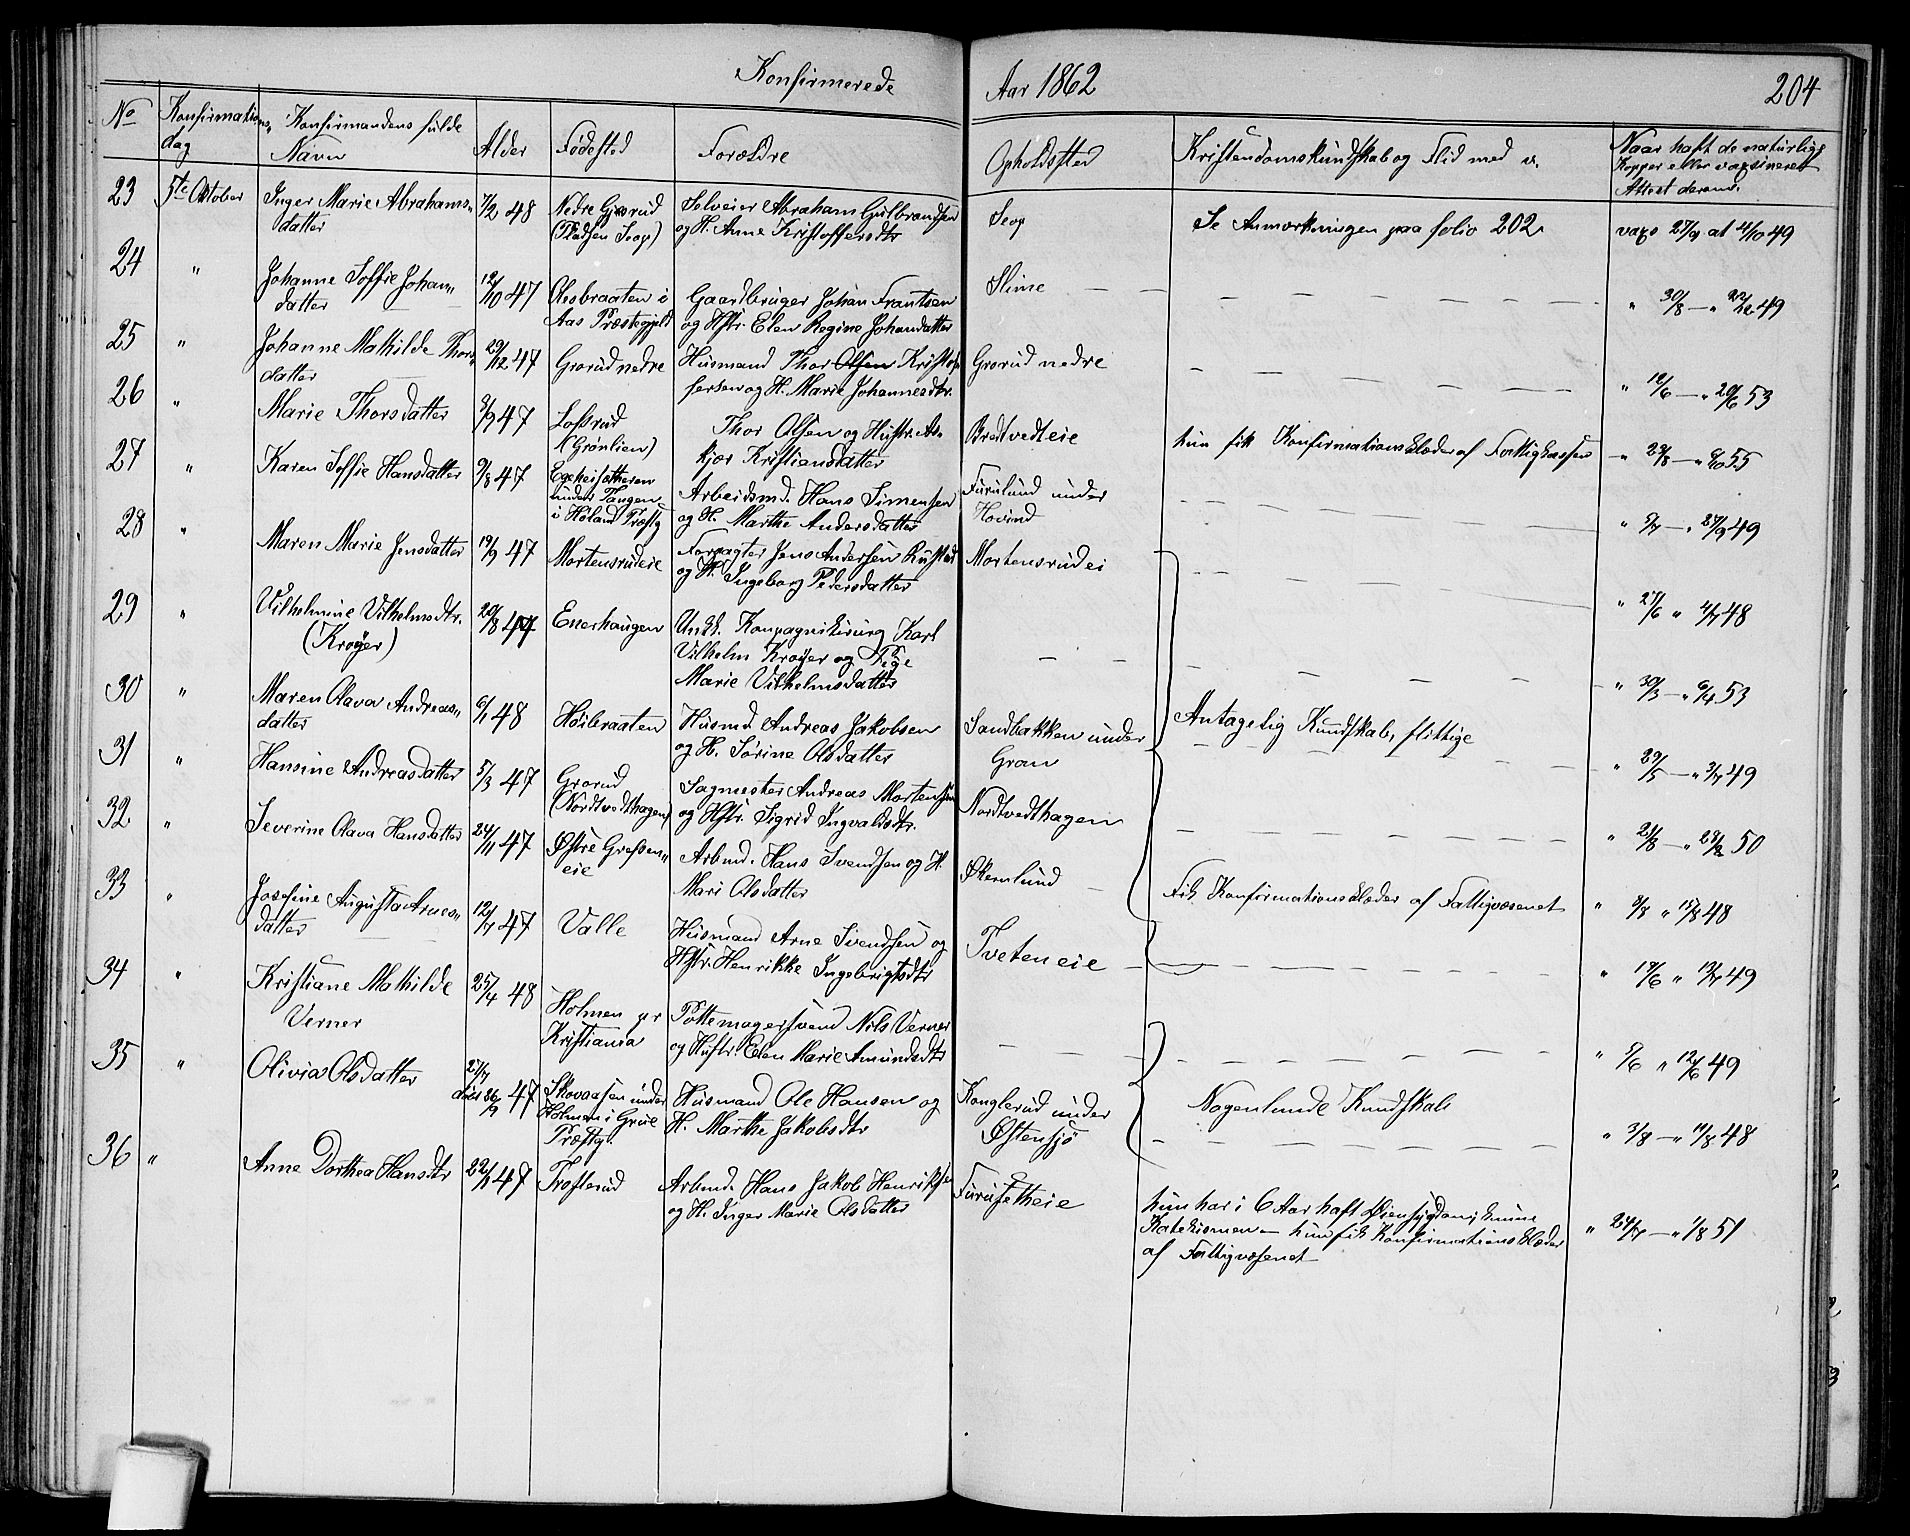 Konfirmerede Aar 1862 204
No Konfirmations- dag Konfirmandens fulde Navn Alder Fødested Forældre Opholdssted Kristendomskundskab og Flid med v. Naar haft de naturlige Kopper eller vaxsineret Attest derom.
23 5te Oktober Inger Marie Abrahams- 7/2 48 Nedre Grorud Selveier Abraham Gulbrandsen
datter (Pladsen Seop) og H. Anne Kristoffersdtr Seop Se Anmerkningen paa folio 202 vaxs 27/9 at 4/10 49
24 " Johanne Soffie Johan- 12/10 47 Gaardbruger Johan Frantsen Slime
datter Aas Præstegjeld og Hstr. Elen Regine Johandatter " 30/8 — " 49
25 " Johanne Mathilde Thors- 29/12 47 Grorud nedre Husmand Thor Olsen Kristof- Grorud nedre
datter fersen og H. Marie Johannesdtr. " 12/6 — " 20/6 53
26 " Marie Thorsdatter 3/9 47 Lofsrud Thor Olsen og Hustr. As- Bredtvedteie hun fik Konfirmationsklæder af Fattigkassen
(Grønlien) kjer Kristiansdatter " 29/8 — " 55
27 " Karen Soffie Hansdatter 9/8 47 under Tangen Arbeidsmd. Hans Simensen Furulund under
i Høland Præstg og H. Marthe Andersdatter Hovind " — " 49
28 " Maren Marie Jensdatter 19/9 47 Mortensrudeie Forpagter Jens Andersen Rustad Mortensrudei
og H. Ingeborg Pedersdatter " 27/6 " 4/7 48
29 " Vilhelmine Vilhelmsdtr. 20/8 47 Enerhaugen Unkk. Kompagnikirurg Karl
(Krøyer) Vilhelm Krøyer og Pige
Marie Vilhelmsdatter " 30/3 — " 6/4 53
30 " Maren Olava Andreas- 6/1 48 Høibraaten Husmd. Andreas Jakobsen Sandbakken under Antagelig Kundskab, flittige
datter og H. Sørine Olsdatter Gran " 29/5 — " 3/7 49
31 " Hansine Andreasdatter 5/3 47 Grorud Sagmester Andreas Mortensen Nordtvedthagen
(Nordtvedthagen) og Hstr. Sigrid Ingvaldsdtr. " 21/8 — " 29/8 50
32 " Severine Olava Hansdatter 24/11 47 Østre Grefsen- Arbmd. Hans Svendsen og H. Økernlund
eie Mari Olsdatter Fik Konfirmationsklæder af Fattigvæsenet " 9/8 " 17/8 48
33 " Josefine Augusta Arnes- 12/7 47 Valle Husmand Arne Svendsen og Tveteneie
datter Hstr. Henrikke Ingebrigtsdtr " 19/6 " 49
34 " Kristiane Mathilde 25/4 48 Holmen pr Pottemagersvend Nils Verner
Verner Kristiania og Hustr. Elen Marie Amundsdtr " 5/6 " 12/6 49
35 " Olivia Olsdatter 27/7 døbt 26/9 47 Skovaasen under Husmand Ole Hansen og Konglerud under Nogenlunde Kundskab
Holmen i Grue Præstg. H. Marthe Jakobsdtr Østensjø " 3/8 — " 11/8 48
36 " Anne Dorthea Hansdtr 47 Trosterud Arbmd. Hans Jakob Henriksen Furusetheie hun har i 6 Aar haft Øiensygdom; kunne
og H. Inger Marie Olsdatter Katekismen — hun fik Konfirmationsklæder " 24/7 — " 1/8 51
af Fattigvæsenet